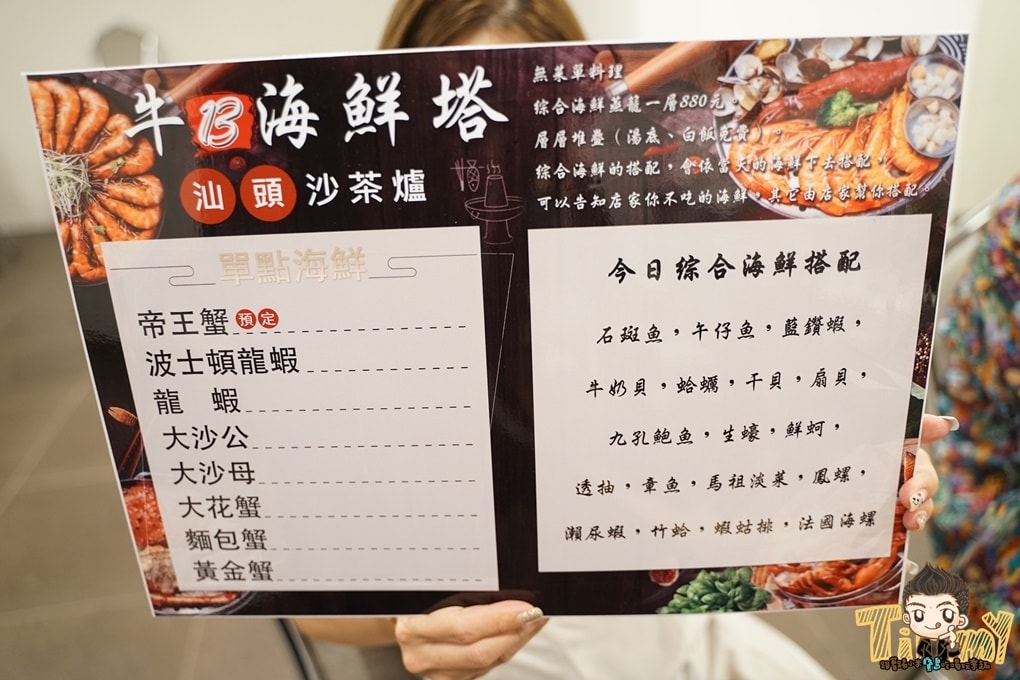 牛13海鮮塔
汕頭沙茶爐
無菜單料理
综合海鮮蒸籠一層880元。
層層堆疊（湯底、白飯免費）。
综合海鮮的搭配，會依當天的海鮮下去搭配，
可以告知店家你不吃的海鮮，其它由店家幫你搭配。
單點海鮮
帝王蟹 預定
波士頓龍蝦
龍 蝦
大沙公
大沙母
大花蟹
麵包蟹
黃金蟹
今日综合海鮮搭配
石斑魚，午仔魚，藍鑽蝦，
牛奶貝，蛤蠣，干貝，扇貝，
九孔鮑魚，生蠔，鮮蚵，
透抽，章魚，馬祖淡菜，鳳螺，
瀨尿蝦，竹蛤，蝦蛄排，法國海螺